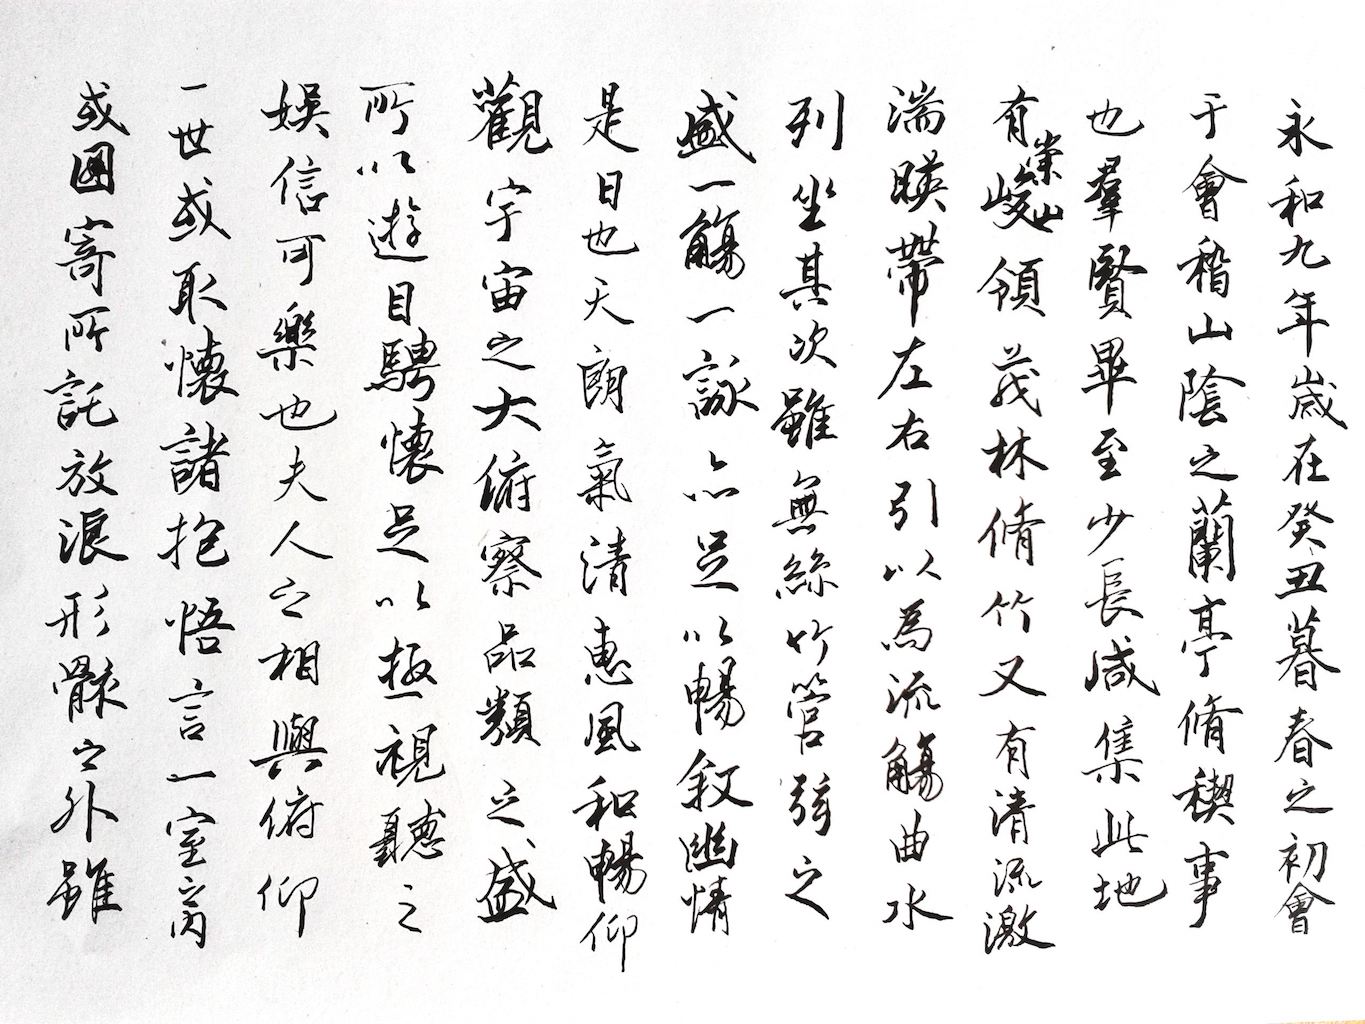 永和九年歲在癸丑暮春之初會
于會稽山陰之蘭亭脩稧事
也羣賢畢至少長咸集此地
有崇山峻領茂林脩竹又有清流激
湍暎帶左右引以為流觴曲水
列坐其次雖無絲竹管弦之
盛一觴一詠亦足以暢敘幽情
是日也天朗氣清惠風和暢仰
觀宇宙之大俯察品類之盛
所以遊目騁懷足以極視聽之
娛信可樂也夫人之相與俯仰
一世或取懷諸抱悟言一室之內
或因寄所託放浪形骸之外雖